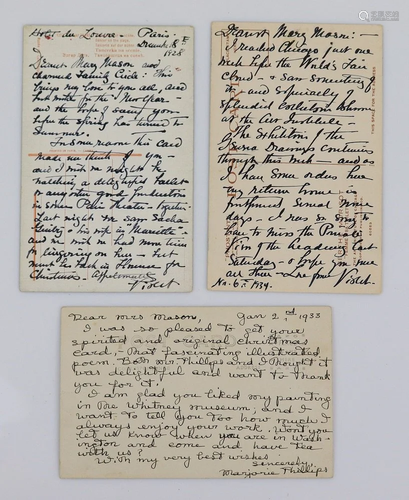 Hotel du Louvre - Paris.
1928
Dearest Mary Mason and
charmed Family Circle: This
brings my love to you all, and
best wishes for the New Year -
and the hope of seeing you
before the Spring has turned to
Summer.
In some reason this card
made me think of you -
and I wish we might be
watching a delightful ballet
or any other good production
in some Paris theatre - together.
Last night we saw Sacha
Guitry & his wife in "Mariette"
and we wish we had more time
for lingering on here - but
must be back in Home for
Christmas - Affectionately
Violet
Dearest Mary Mason:-
I reached Chicago just one
week before the World's Fair
closed - & saw something of
it and especially
splendid Collections shown
at the Art Institute -
The Exhibition of the
Drawings continues
through this week - and as
I has some orders here
my return home is
postponed several more
days - I was so sorry to
have to miss the Private
View of the Academy last
Saturday - & hope you were
all there - Love from Violet.
Nov. 6th 1934.
THIS SPACE FOR THE ADDRESS
Dear Mrs Mason, Jan 2nd 1933
I was so pleased to get your
spirited and original Christmas
card, - that fascinating illustrated
poem. Both Mr. Phillips and I thought it
was delightful and want to thank
you for it.
I am glad you liked my painting
in the Whitney Museum, and I
want to tell you too how much I
always enjoy your work. Won't you
let us know when you are in Wash-
ington and come and have tea
with us?
With my very best wishes
Sincerely,
Marjorie Phillips